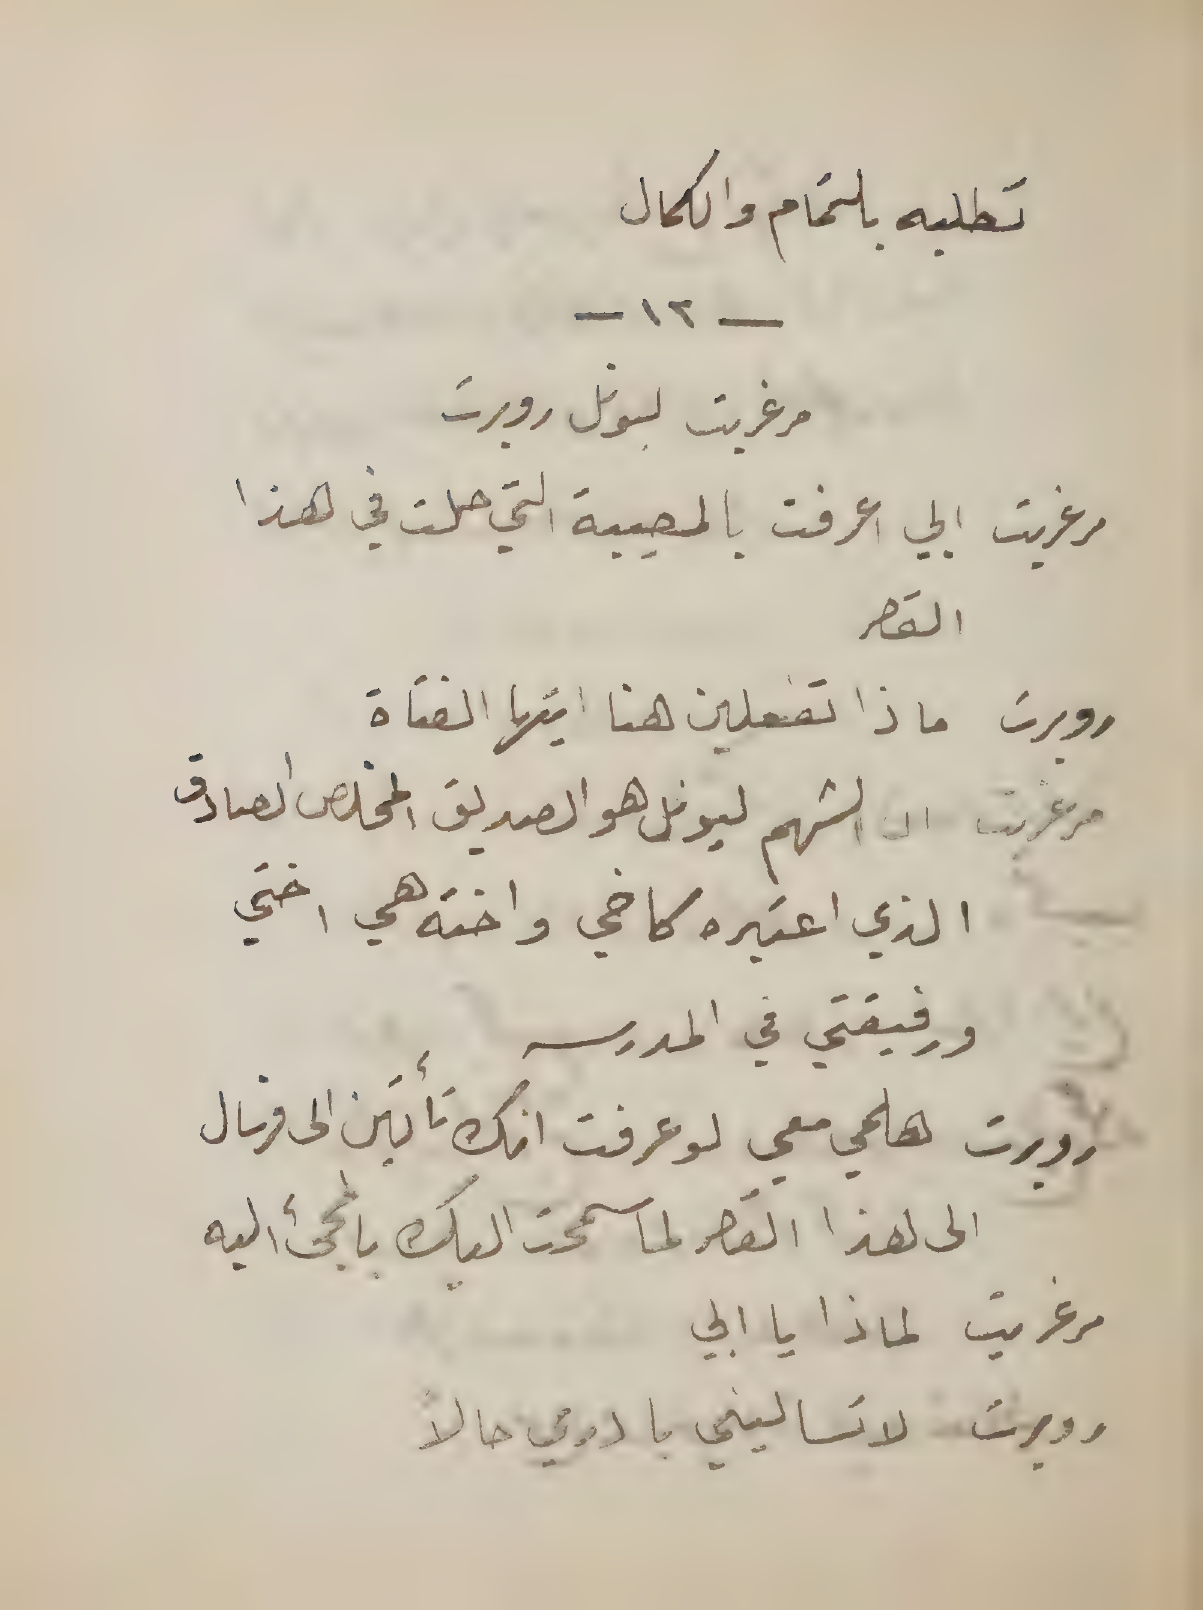 تطلبه بالتمام والكمال
— ١٢ —
مرغريت ليونل روبرت
مرغريت ابي اعرفت بالمصيبة التي حلت في هذا
القصر
روبرت ماذا تفعلين هنا ايتها الفتاة
مرغريت ان الشهم ليونل هو الصديق المخلص الصادق
الذي اعتبره كاخي واخته هي اختي
ورفيقتي في المدرسه
روبرت هلمي معي لو عرفت انك تأتين الى
الى هذا القصر لما سمحت اليك بالمجئ اليه
مرغريت لماذا يا ابي
روبرت لا تساليني حالاً